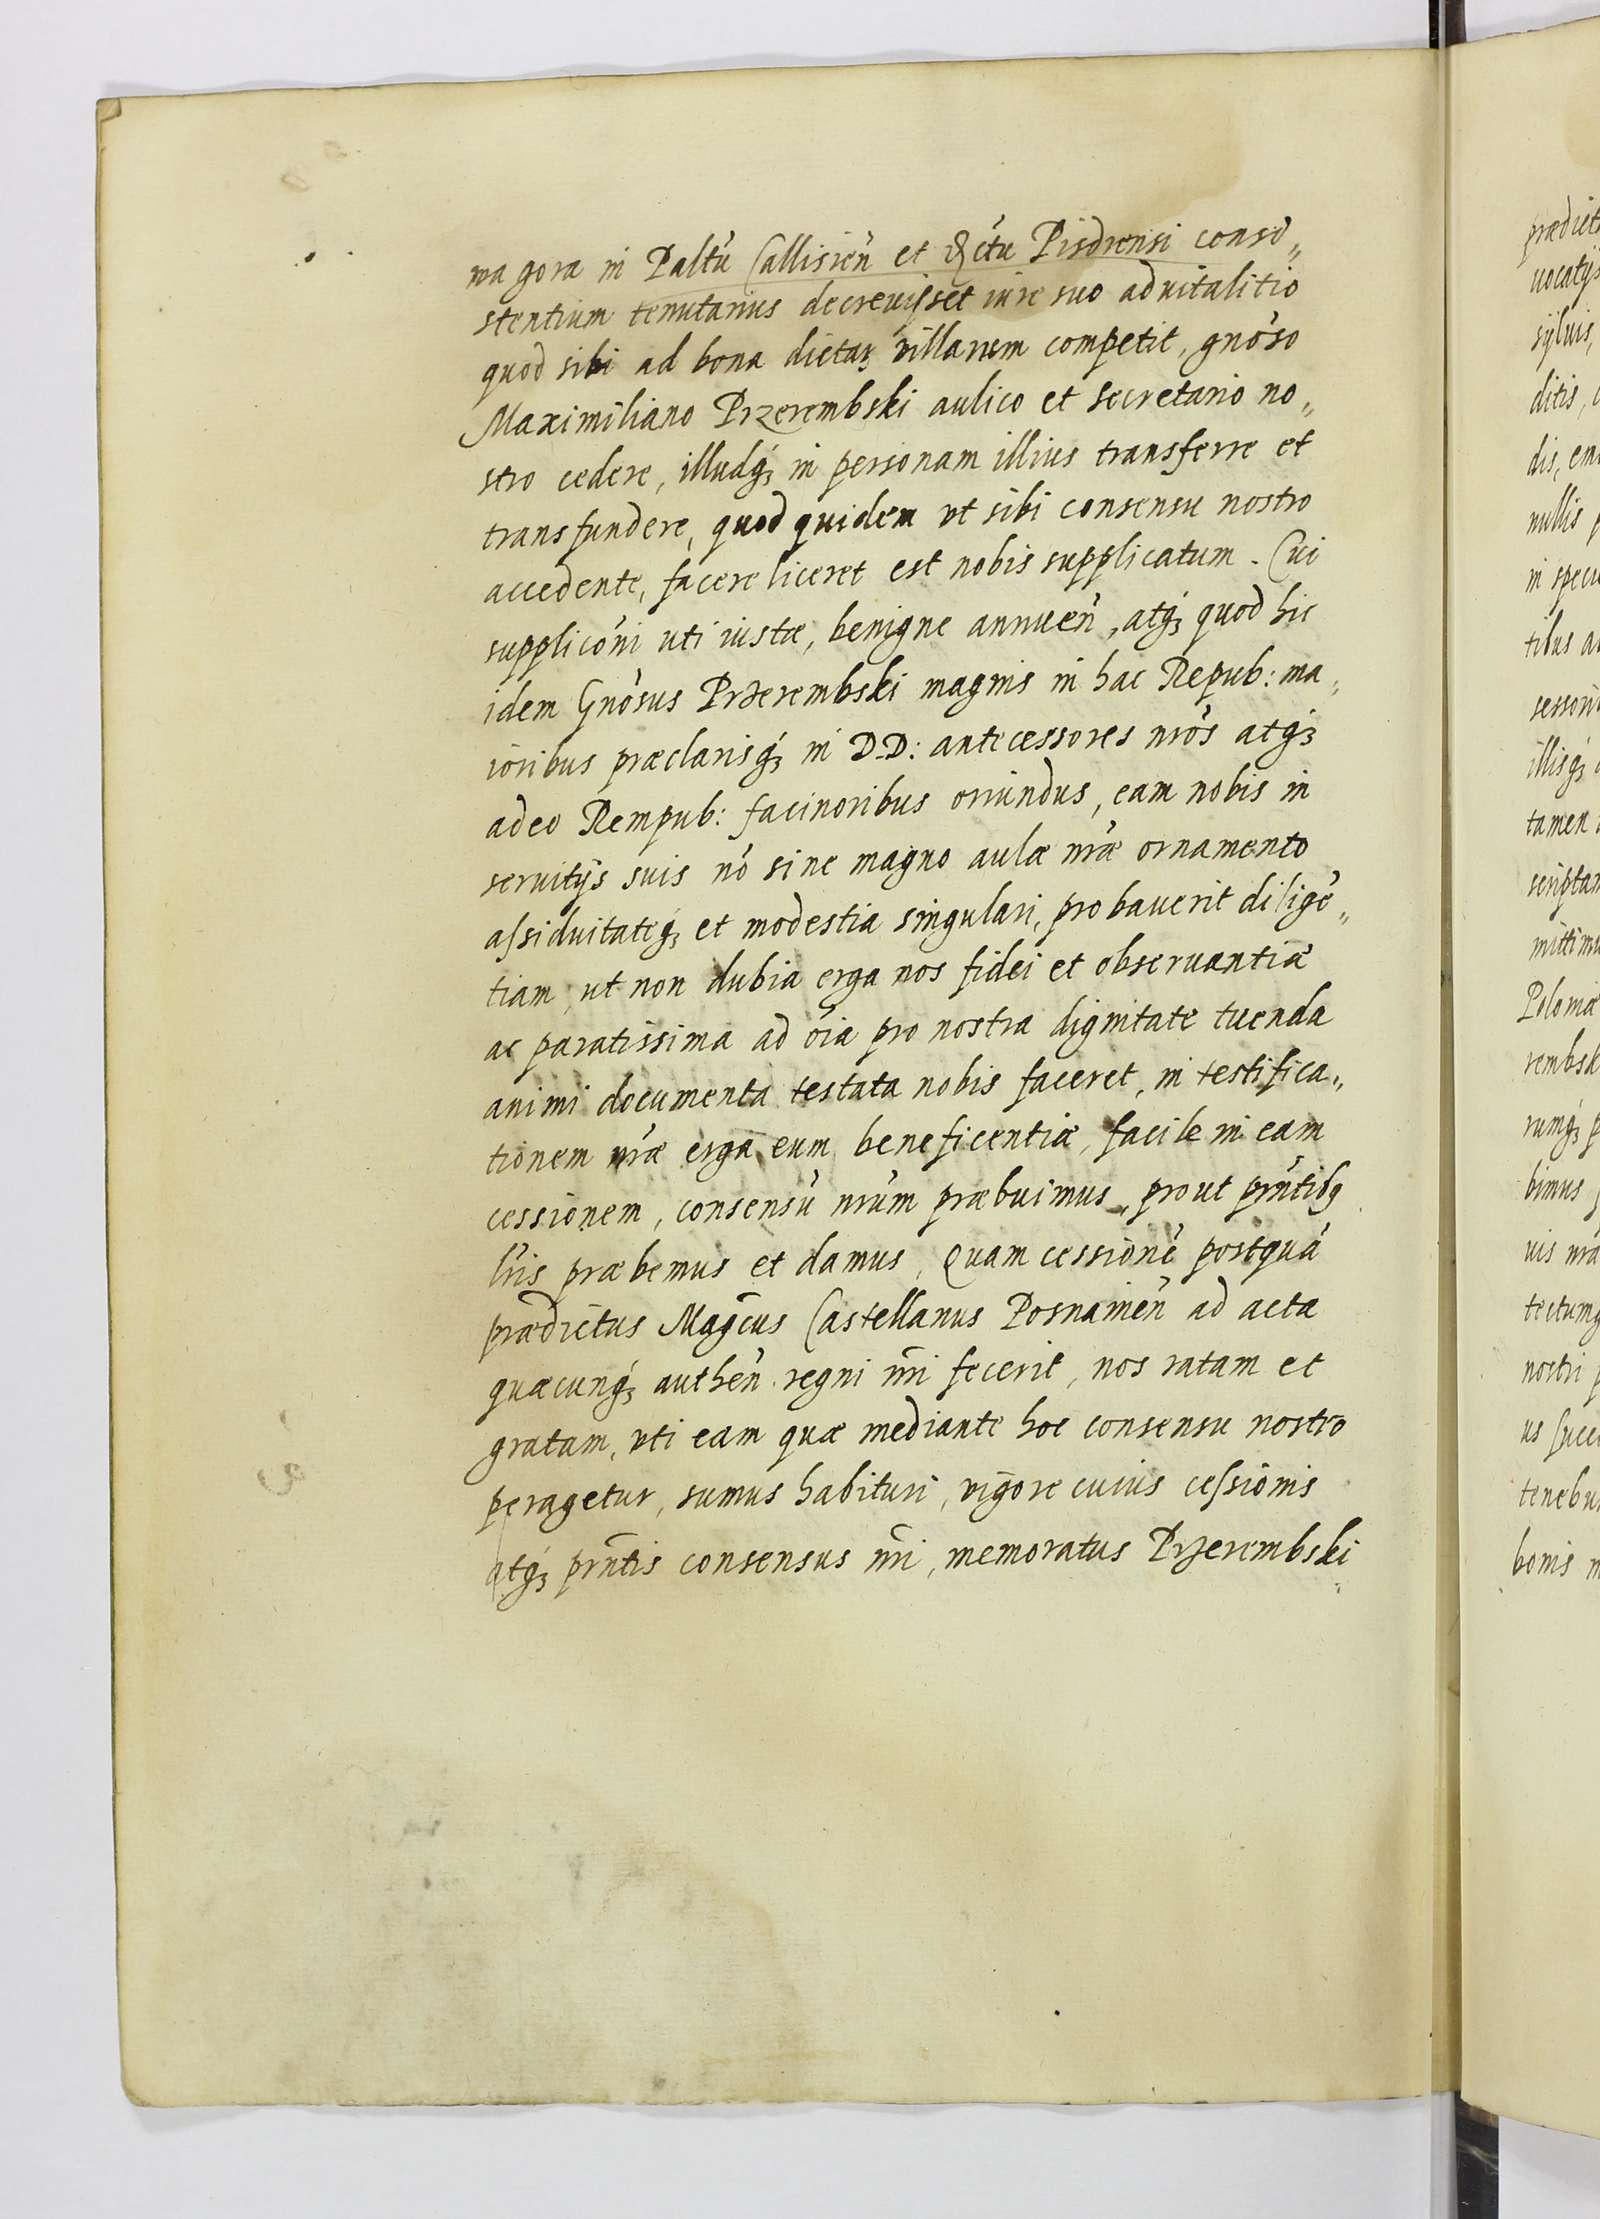 wa gora in Paltũ Callisieñ et Dictu Pisdrensi consi„
stentium tenutarius decreuisset iure suo aduitalitio
quod sibi ad bona dictaꝝ villarum competit, gnõso
Maximiliano Przerembski aulico et secretario no„
stro cedere, illudq́ꝫ in personam illius transferre et
transfundere, quod quidem vt sibi consensu nostro
accedente, facere liceret est nobis supplicatum. Cui
supplicõni uti iustæ, benigne annueñ, atq́ꝫ quod hic
idem Gnõsus Przerembski magnis in hac Repub: ma„
ioribus præclarisq́ꝫ in D.D: antecessores nrõs atq́ꝫ
adeo Rempub: facinoribus oriundus, eam nobis in
seruitijs suis nõ sine magno aulæ nræ̃ ornamento
assiduitateq́ꝫ et modestia singulari, probauerit diligẽ„
tiam, ut non dubia erga nos fidei et obseruantiæ
ac paratissima ad oĩa pro nostra dignitate tuenda
animi documenta testata nobis faceret, in testifica„
tionem nræ̃ erga eum beneficentiæ, facile in eam
cessionem, consensũ nrũm præbuimus, prout prñtibꝫ
lr̃is præbemus et damus, Quam cessionẽ postquã
prædictus Magc̃us Castellanus Posnanieñ ad acta
quæcunq́ꝫ autheñ regni nr̃i fecerit, nos ratam et
gratam, vti eam quæ mediante hoc consensu nostro
peragetur, sumus habituri, vigore cuius cessionis
atq́ꝫ prñtis consensus nr̃i, memoratus Przerembski